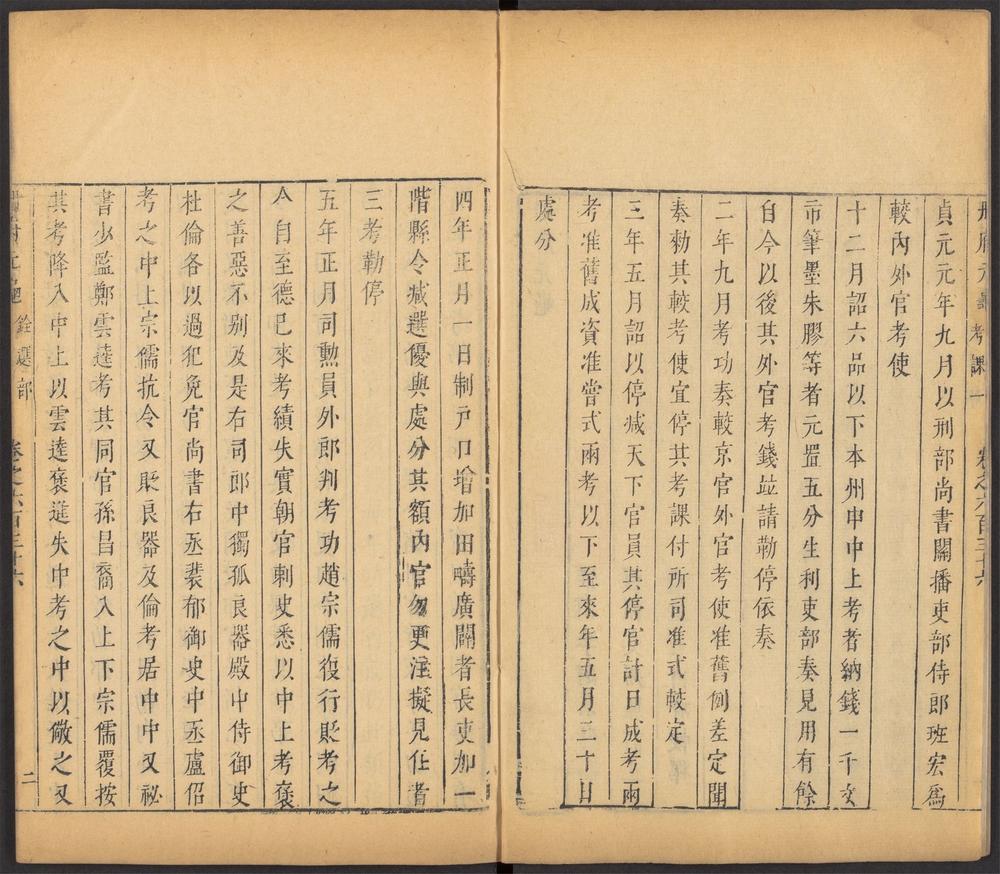 冊府元龜考課一 卷之六百三十六
貞元元年九月以刑部尚書關播吏部侍郎班宏爲
較內外官考使
十二月詔六品以下本州申中上考者納錢一千文
市筆墨朱膠等者元置五分生利吏部奏見用有餘
自今以後其外官考錢竝請勒停依奏
二年九月考功奏較京官外官考使准舊例差定聞
奏勑其較考使宜停其考課付所司准式較定
三年五月詔以停減天下官員其停官計日成考兩
考准舊成資准嘗式兩考以下至來年五月三十日
處分
四年正月一日制戸口增加田疇廣闢者長吏加一
階縣令減選優與處分其額內官勿更注擬見任者
三考勒停
五年正月司勳員外郎判考功趙宗儒復行貶考之
令自至德巳來考績失實朝官刺史悉以中上考褒
之善惡不別及是右司郎中獨孤良器殿中侍御史
杜倫各以過犯免官尚書右丞裴郁御史中丞盧佋
考之中上宗儒抗令又貶良器及倫考居中中又祕
書少監鄭雲逵考其同官孫昌裔入上下宗儒覆按
其考降入中上以雲逵褒進失中考之中以儆之又
冊府元龜 銓選部 卷之六百三十六 二